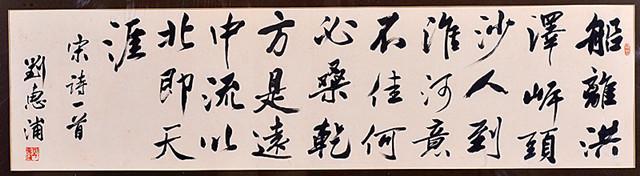 船離洪
澤岸頭
沙人到
淮河意
不佳何
必桑乾
方是遠
中流以
北即天
涯
宋诗一首
劉惠浦